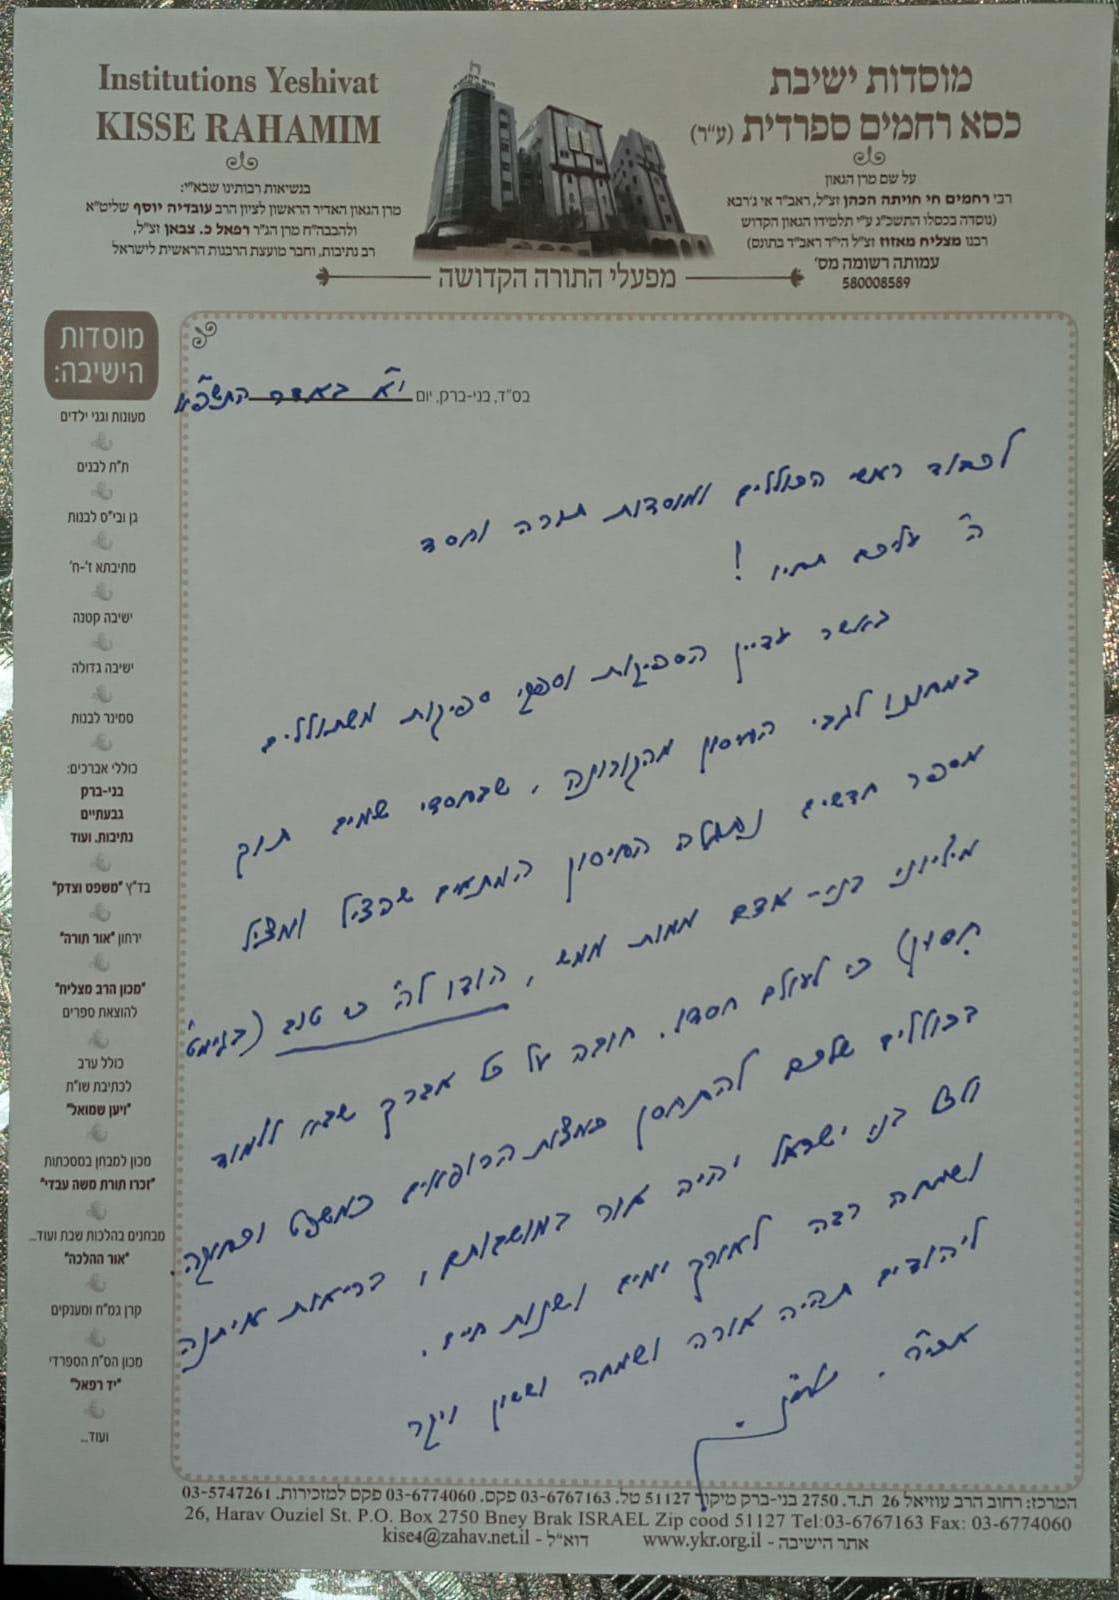 Institutions Yeshivat
KISSE RAHAMIM
בנשיאות רבותינו שבא"י:
מרן הגאון האדיר הראשון לציון הרב עובדיה יוסף שליט"א
ולהבבה"ח מרן הג"ר רפאל כ. צבאן זצ"ל,
רב נתיבות, וחבר מועצת הרבנות הראשית לישראל
מוסדות ישיבת
כסא רחמים ספרדית (ע"ר)
על שם מרן הגאון
רבי רחמים חי חויתה הכהן זצ"ל, ראב"ד אי ג'רבא
(נוסדה בכסלו התשכ"ג ע"י תלמידו הגאון הקדוש
רבנו מצליח מאזוז זצ"ל הי"ד ראב"ד בתונס)
עמותה רשומה מס'
580008589
מפעלי התורה הקדושה
מוסדות
הישיבה:
מעונות וגני ילדים
ת"ת לבנים
גן ובי"ס לבנות
מתיבתא ז'-ח'
ישיבה קטנה
ישיבה גדולה
סמינר לבנות
כוללי אברכים:
בני-ברק
גבעתיים
נתיבות, ועוד
בד"ץ "משפט וצדק"
ירחון "אור תורה"
"מכון הרב מצליח"
להוצאת ספרים
כולל ערב
לכתיבת שו"ת
"ויען שמואל"
מכון למבחן במסכתות
"זכרו תורת משה עבדי"
מבחנים בהלכות שבת ועוד...
"אור ההלכה"
קרן גמ"ח ומענקים
מכון הס"ת הספרדי
"יד רפאל"
ועוד...
בס"ד, בני-ברק, יום י"א באדר התשפ"א
לכבוד ראשי הכוללים ומוסדות תורה וחסד
ה' עליכם תחיו !
באשר עדיין הספיקות וספקי ספיקות משתוללים
במחננו לגבי החיסון מהקורונה, שבחסדי שמים תוך
מספר חדשים נתגלה החיסון המתאים שהציל ומציל
מיליוני בני-אדם ממות ממש, הודו לה' כי טוב (בגימט'
חסון) כי לעולם חסדו. חובה על כל אברך שבא ללמוד
בכוללים שלכם להתחסן כמצות הרופאים כמשפט וכחוקה.
ולכל בני ישראל יהיה אור במושבותם, בריאות איתנה
ושמחה רבה לאורך ימים ושנות חיים.
ליהודים תהיה אורה ושמחה וששון ויקר
אכי"ר.
המרכז: רחוב הרב עוזיאל 26 ת.ד. 2750 בני-ברק מיקוד 51127 טל. 03-6767163 פקס. 03-6774060 פקס למזכירות. 03-5747261
26, Harav Ouziel St. P.O. Box 2750 Bney Brak ISRAEL Zip cood 51127 Tel:03-6767163 Fax: 03-6774060
אתר הישיבה - www.ykr.org.il דוא"ל - kise4@zahav.net.il